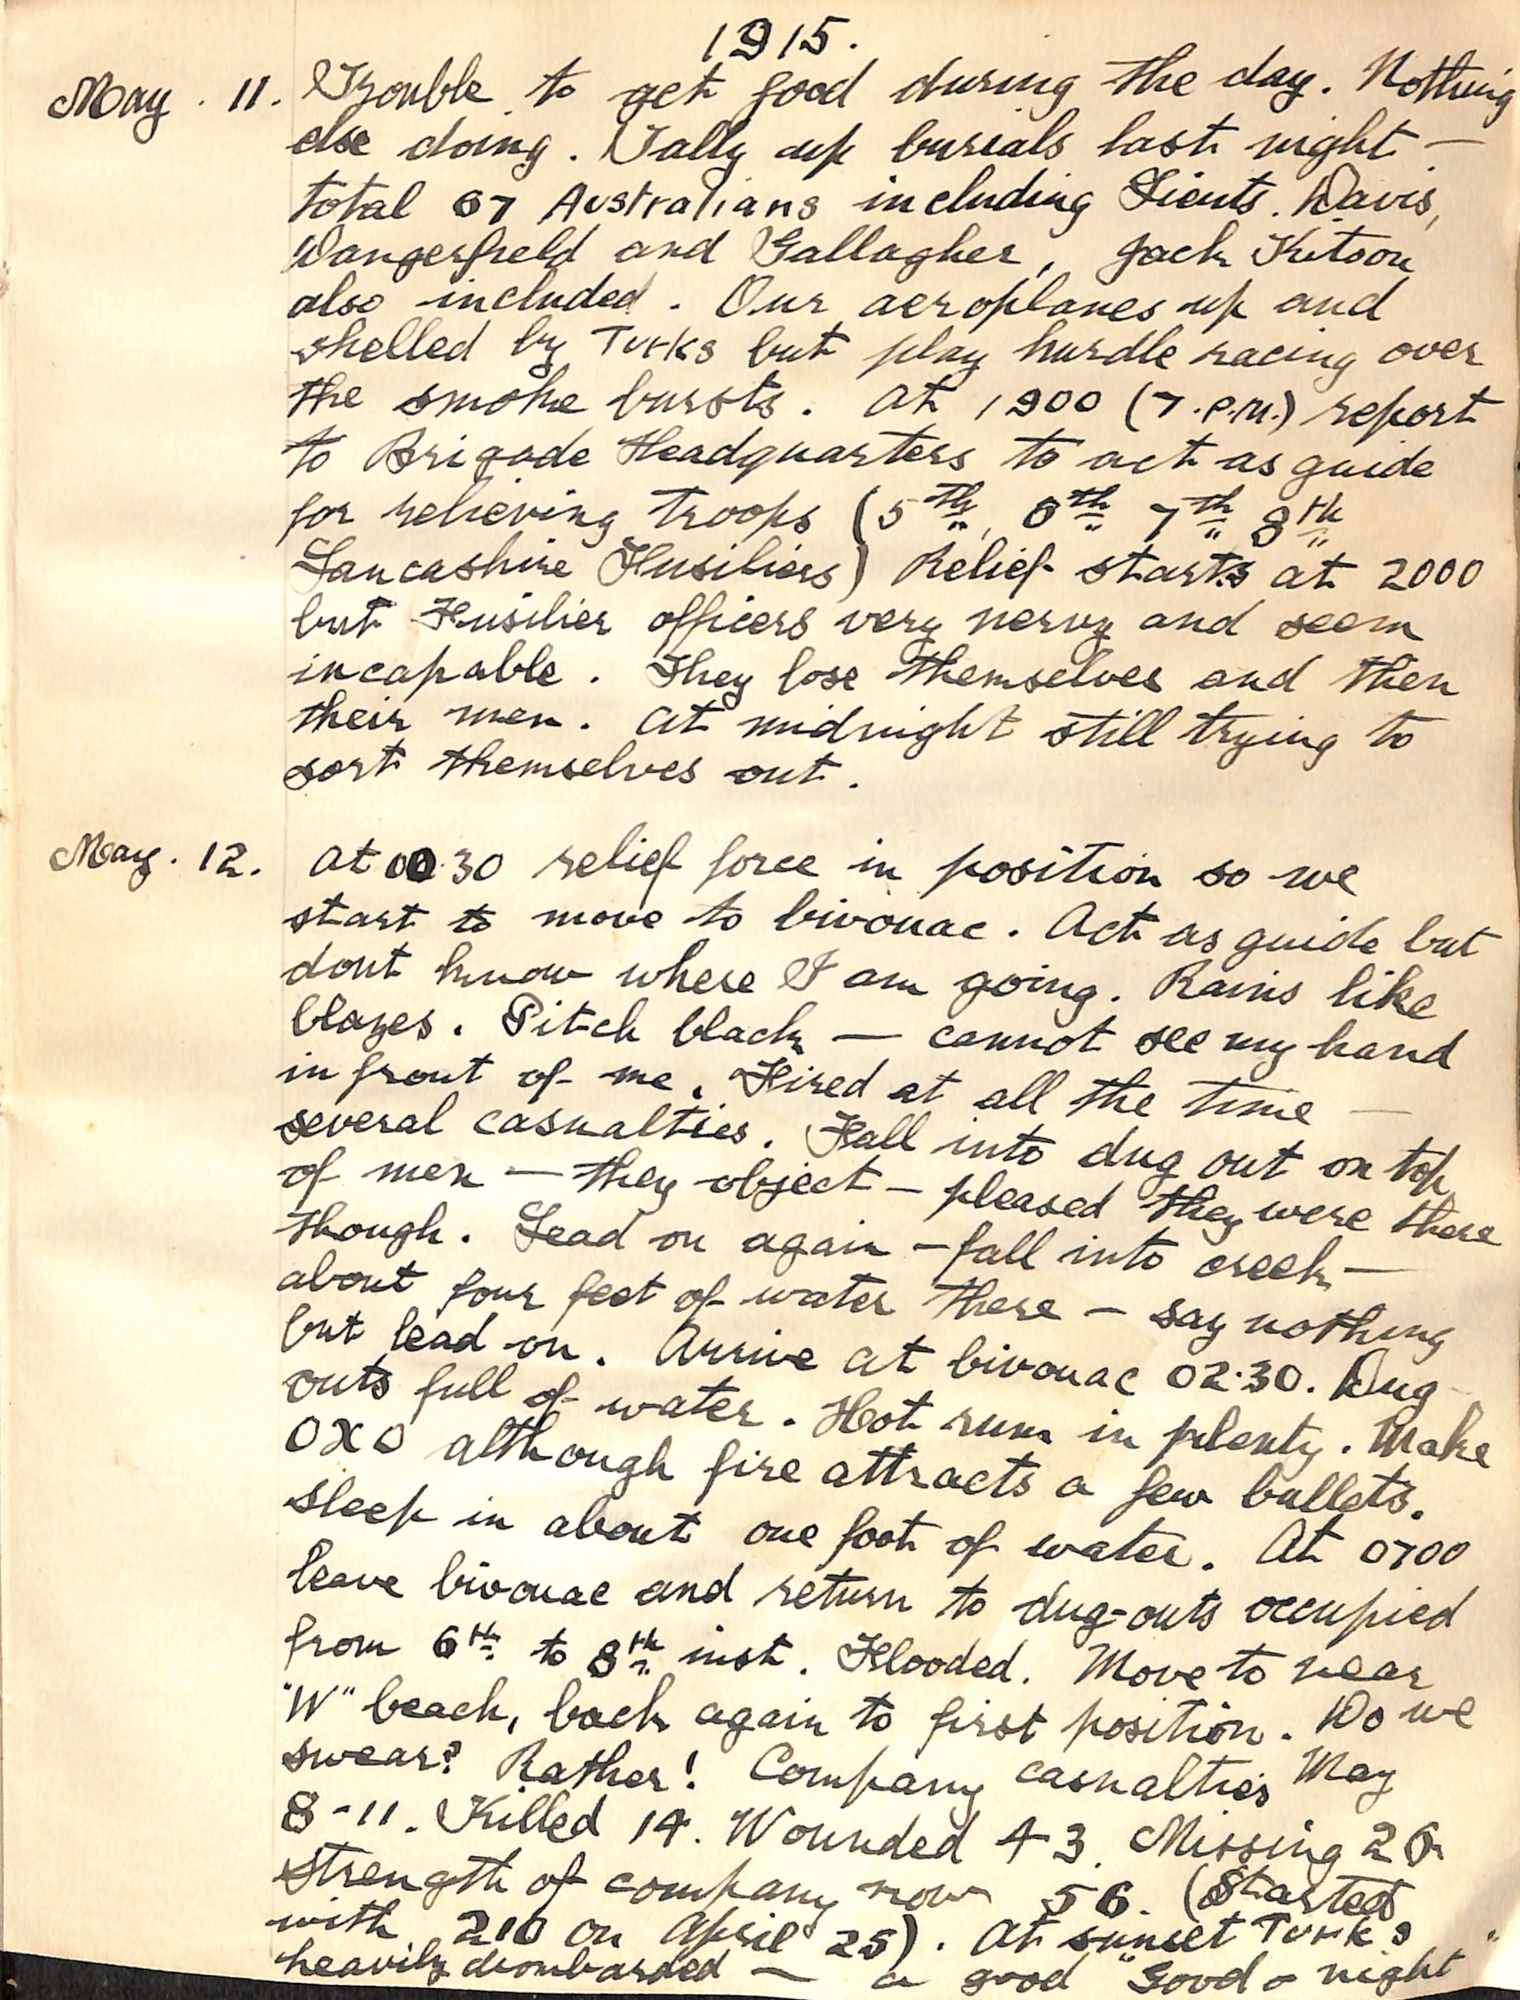 1915.
May. 11. Trouble to get food during the day. Nothing
else doing. Tally up burials last night —
total 67 Australians including Lieuts. Davis,
Dangerfield and Gallagher, Jack Kitson
also included. Our aeroplanes up and
shelled by Turks but play hurdle racing over
the smoke bursts. At 1900 (7.P.M.) report
to Brigade Headquarters to act as guide
for relieving troops (5th, 6th 7th 8th
Lancashire Fusiliers) Relief starts at 2000
but Fusilier officers very nervy and seem
incapable. They lose themselves and then
their men. At midnight still trying to
sort themselves out.
May. 12. At 0030 relief force in position so we
start to move to bivouac. Act as guide but
dont know where I am going. Rains like
blazes. Pitch black — cannot see my hand
in front of me. Fired at all the time —
several casualties. Fall into dug out on top
of men — they object — pleased they were there
though. Lead on again — fall into creek —
about four feet of water there — say nothing
but lead on. Arrive at bivouac 02.30. Dug
outs full of water. Hot rum in plenty. Make
OXO although fire attracts a few bullets.
Sleep in about one foot of water. At 0700
leave bivouac and return to dug-outs occupied
from 6th to 8th inst. Flooded. Move to near
"W" beach, back again to first position. Do we
swear? Rather! Company casualties May
8-11. Killed 14. Wounded 43. Missing 26
Strength of company now 56. (Started
with 210 on April 25). At sunset Turks
heavily bombarded — a good "Good-night"